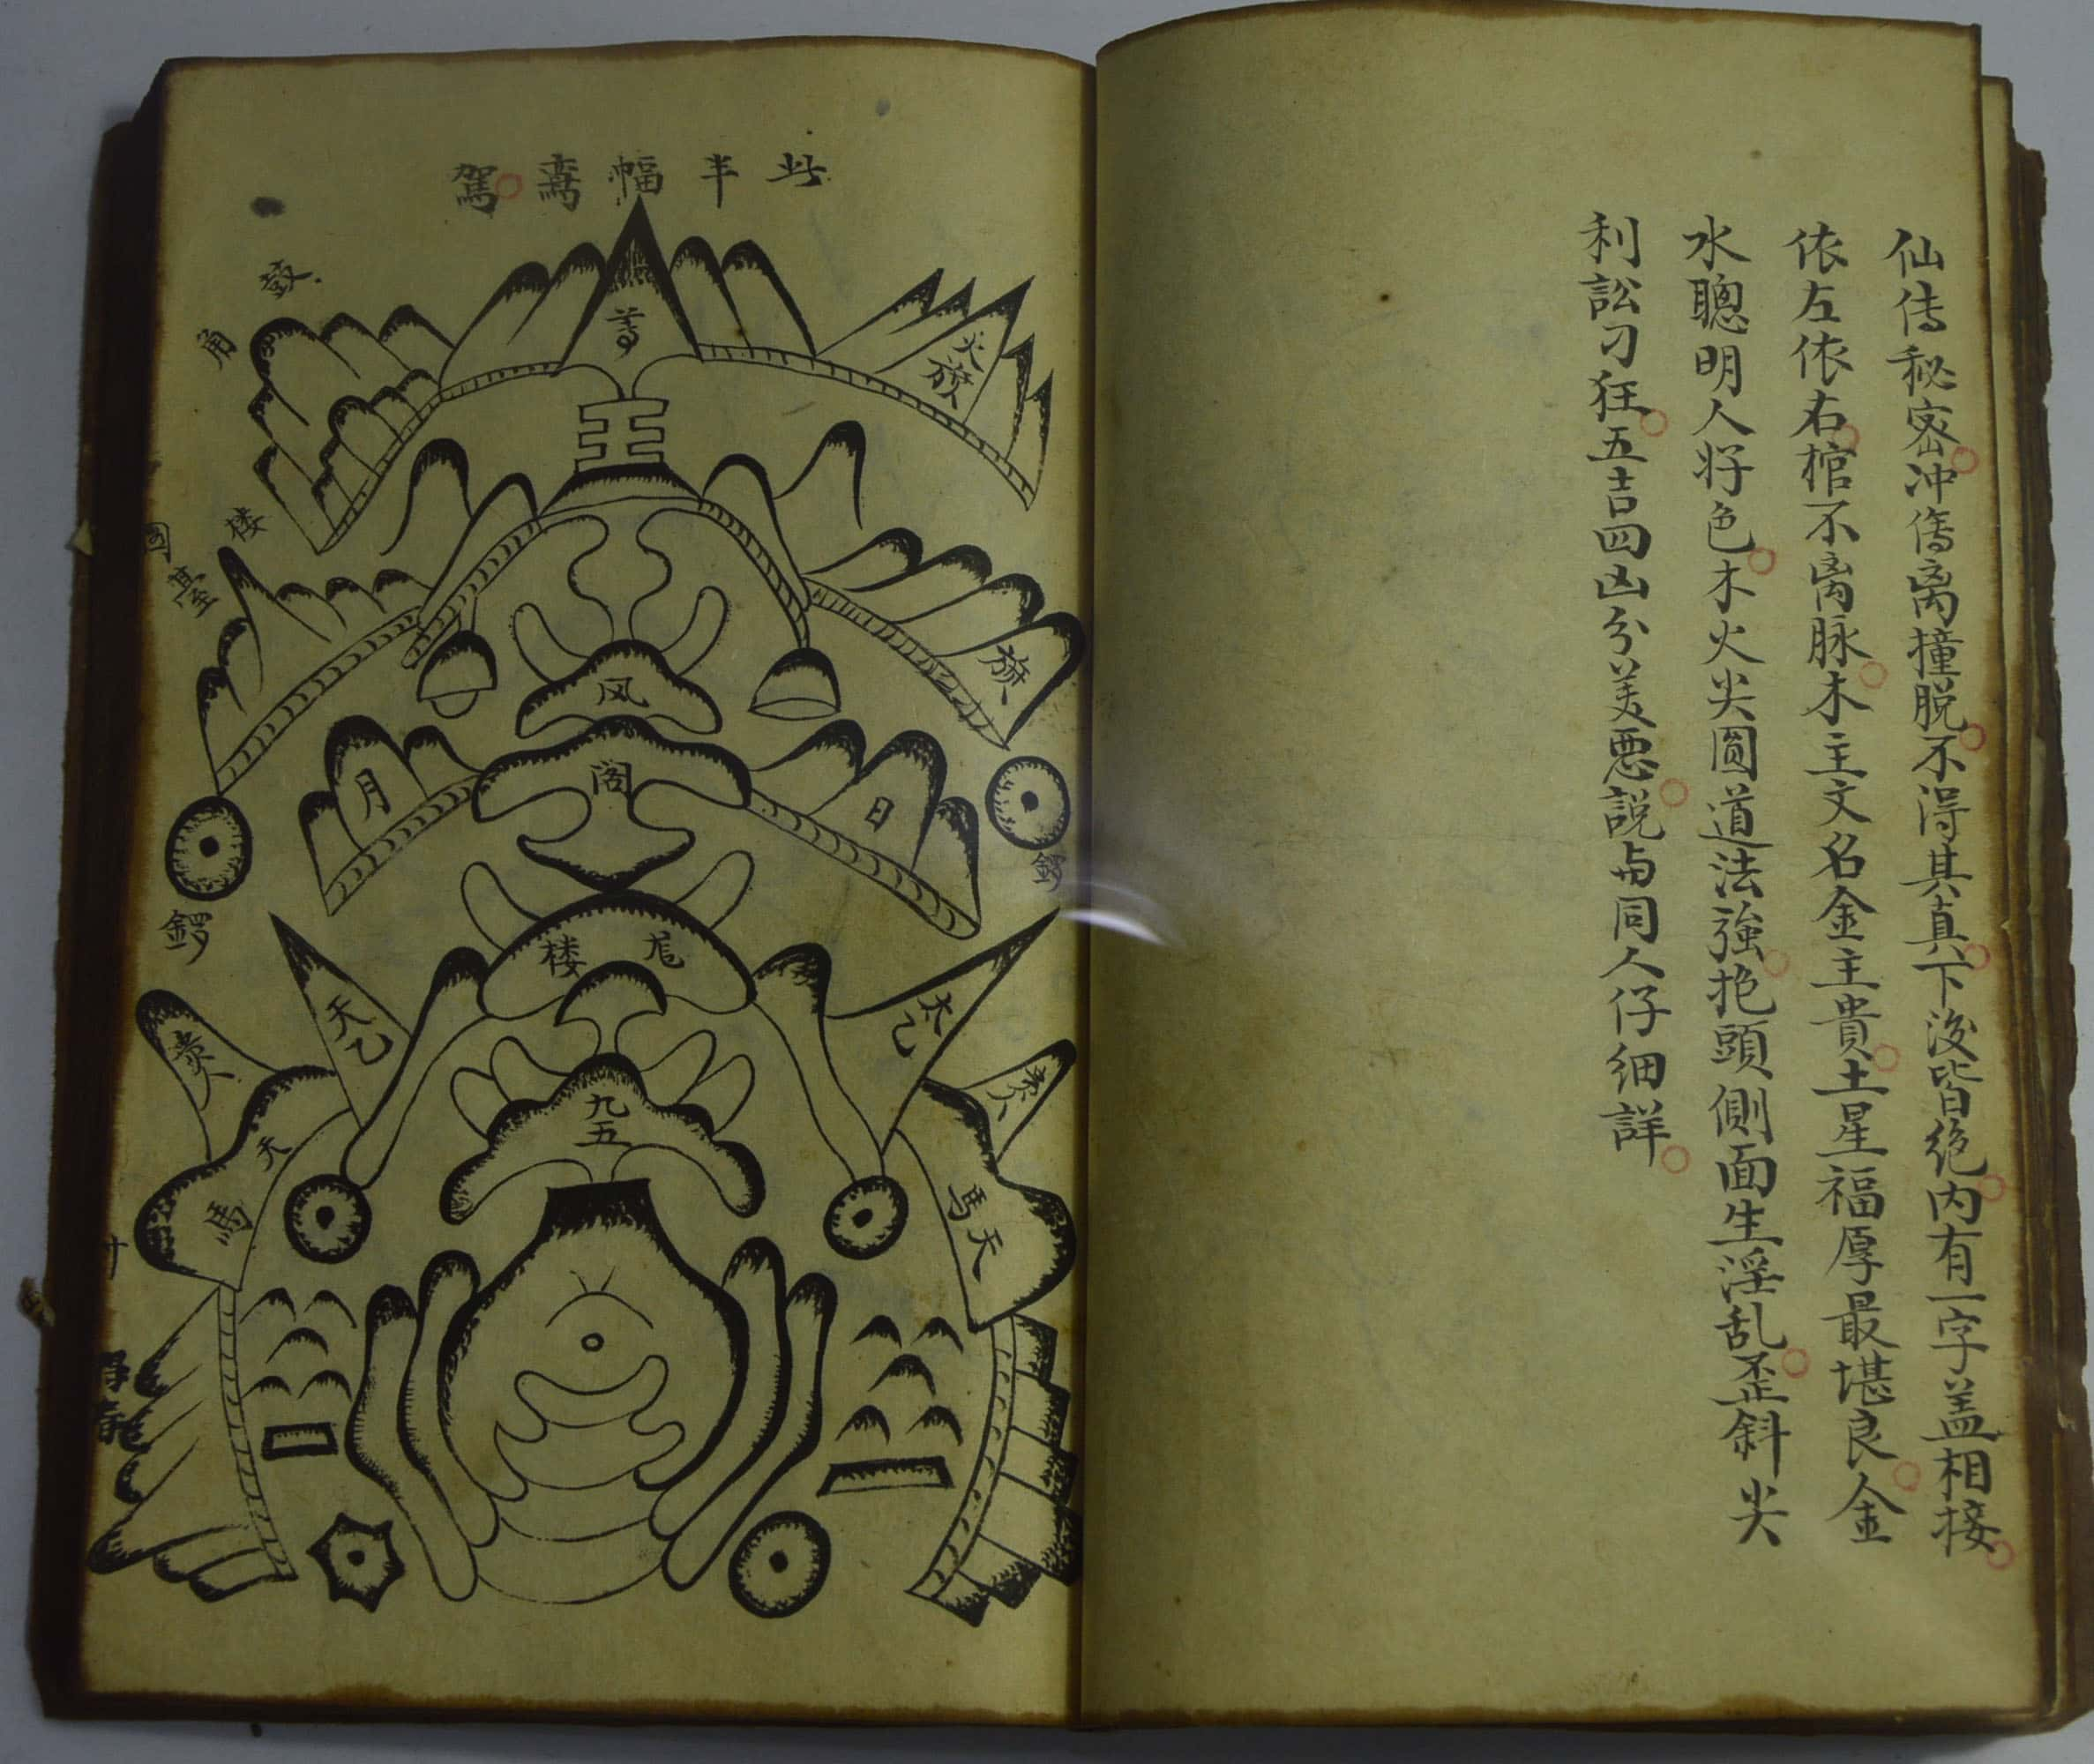 仙传秘密冲傷离撞脱不得其真下後皆绝内有一字盖相接
依左依右棺不离脉木主文名金主貴土星福厚最堪良金
水聰明人好色木火尖圓道法強抱頭側面生淫乱歪斜尖
利訟刁狂五吉四凶分美悪説与同人仔細詳
此半幅鸞駕
鼓
角
火旗
王
楼
臺
旗
凤
阁
月
日
鑼
鑼
楼
天乙
太乙
九五
天馬
天馬